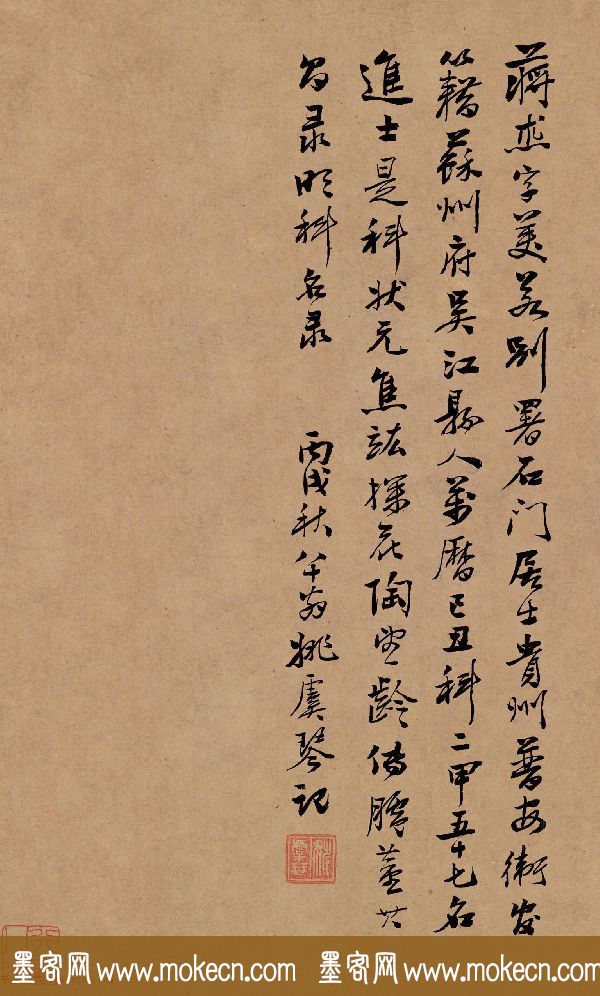 蔣杰字美若別署石門居士貴州普安衛官
籍蘇州府吳江縣人萬曆己丑科二甲五十七名
進士是科狀元焦竑探花陶望齡傳臚董其
昌录明科名录 丙戌秋八十翁姚虞琴記
墨客网 www.mokecn.com 墨客网 www.mokecn.com